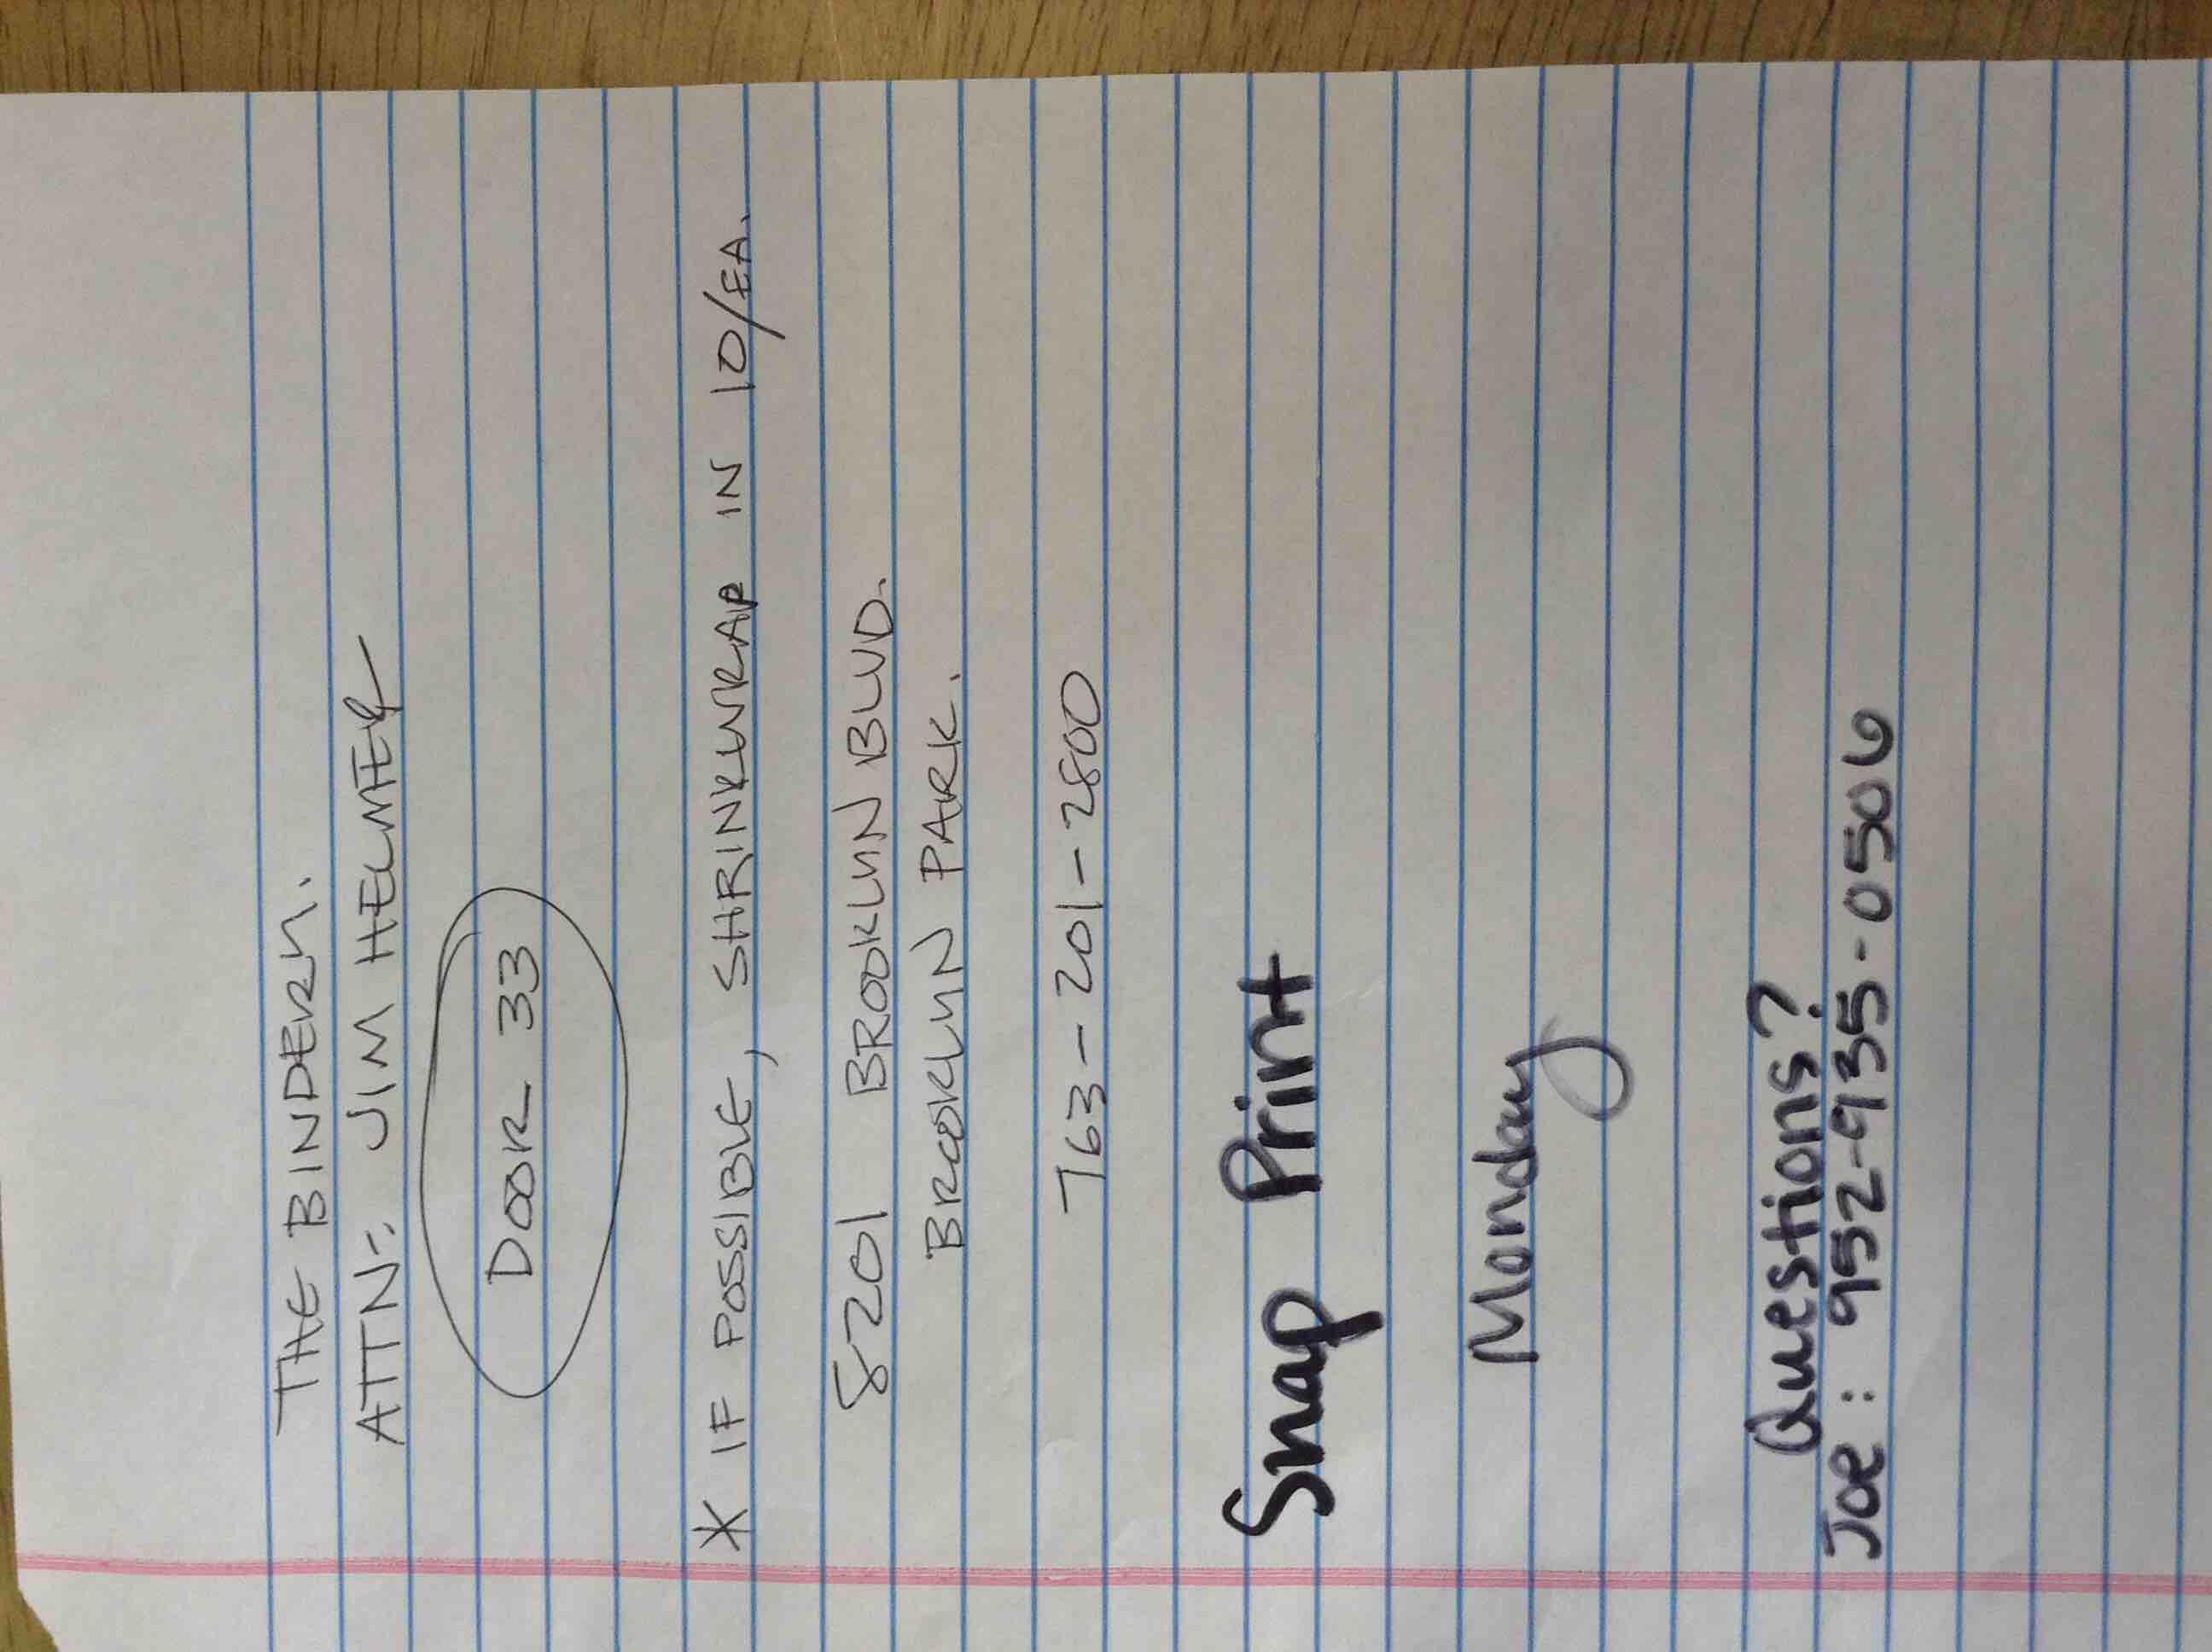 THE BINDERY.
ATTN: JIM HELMER
DOOR 33
* IF POSSIBLE, SHRINKWRAP IN 10/EA.
8201 BROOKLYN BLVD.
BROOKLYN PARK.
763-201-2800
Snap Print
Monday
Questions?
Joe: 952-935-0506